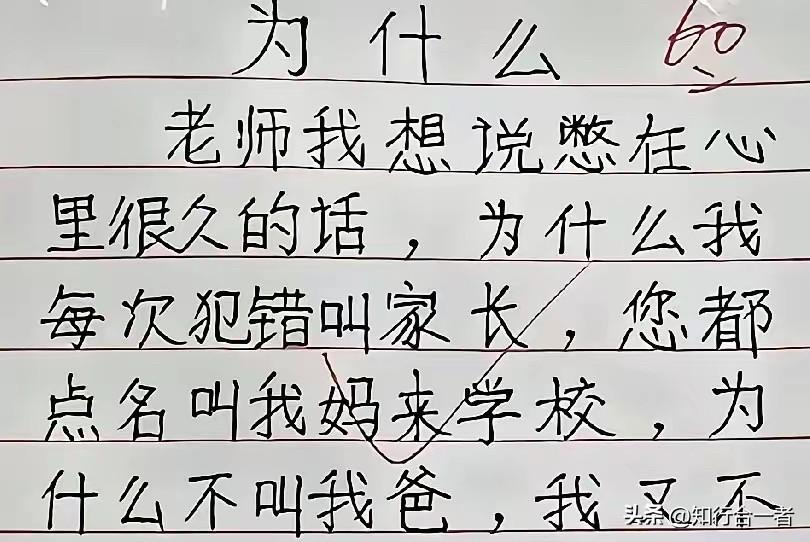 为什么 60
老师我想说憋在心
里很久的话，为什么我
每次犯错叫家长，您都
点名叫我妈来学校，为
什么不叫我爸，我又不
头条 @知行合一者